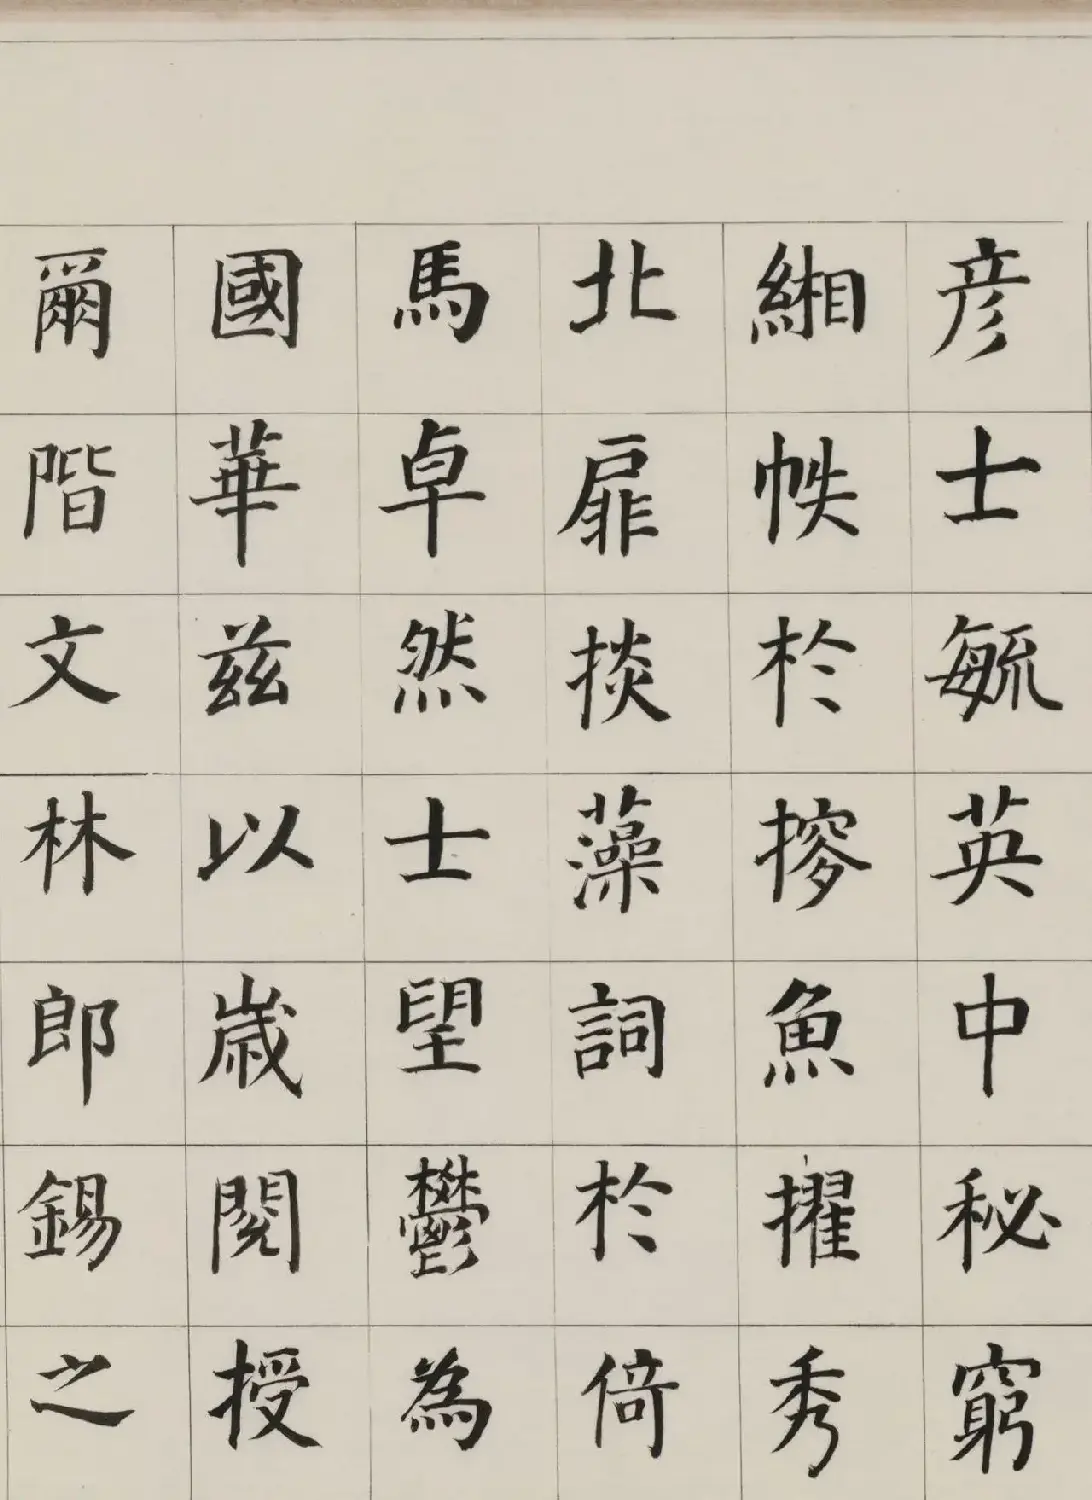 彦士毓英中秘窮
緗帙於摎魚擢秀
北扉掞藻詞於倚
馬卓然士望鬱為
國華兹以歲閱授
爾階文林郎錫之